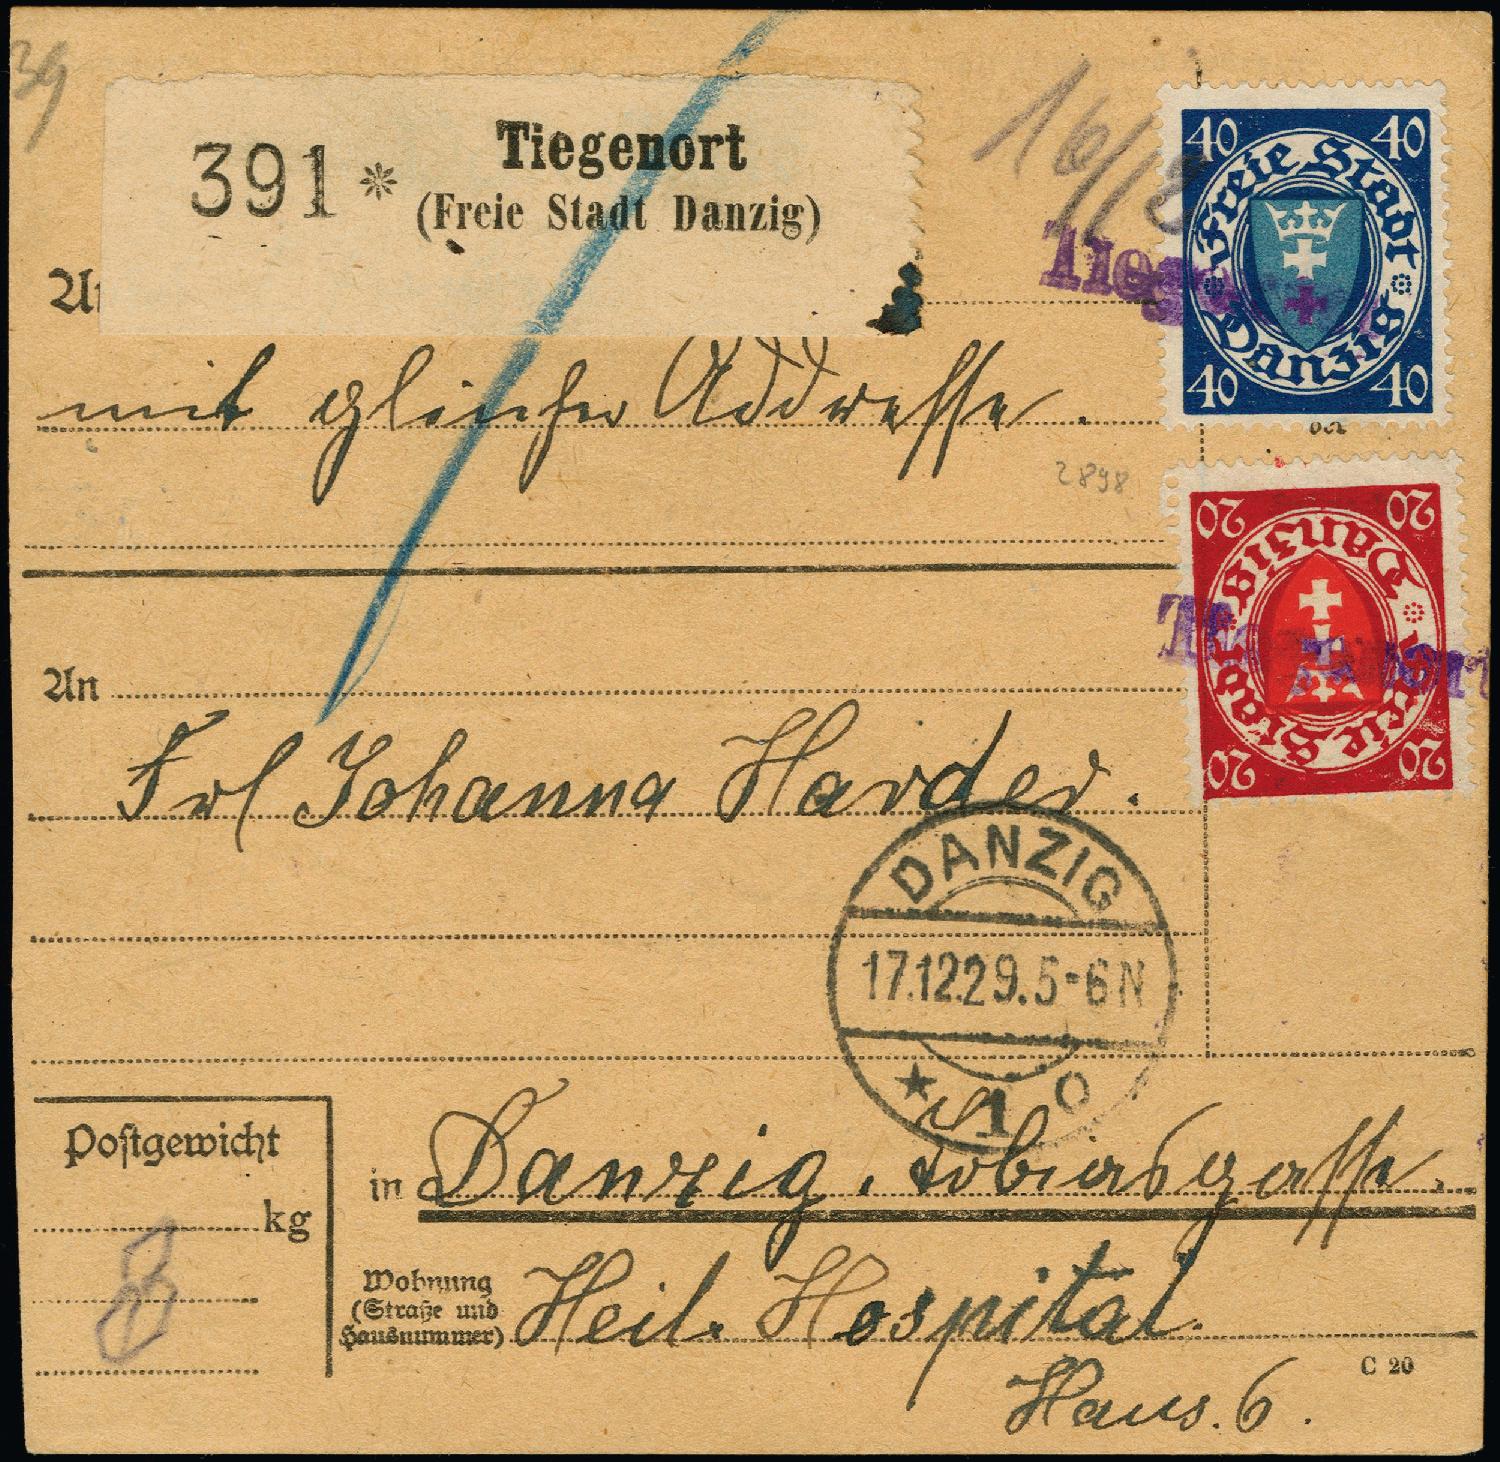 39
391 * Tiegenort
(Freie Stadt Danzig)
16/
40 40
Freie Stadt
Danzig
40 40
An
mit gleicher Addresse.
2898
20 20
Freie Stadt
Danzig
20 20
Tiegenort
An
Frl Johanna Harder.
DANZIG
17.12.29.5-6N
* 1 o
Postgewicht
kg
8
in Danzig. Tobiasgasse.
Wohnung
(Straße und
Hausnummer)
Heil. Hospital.
Haus. 6.
C 20